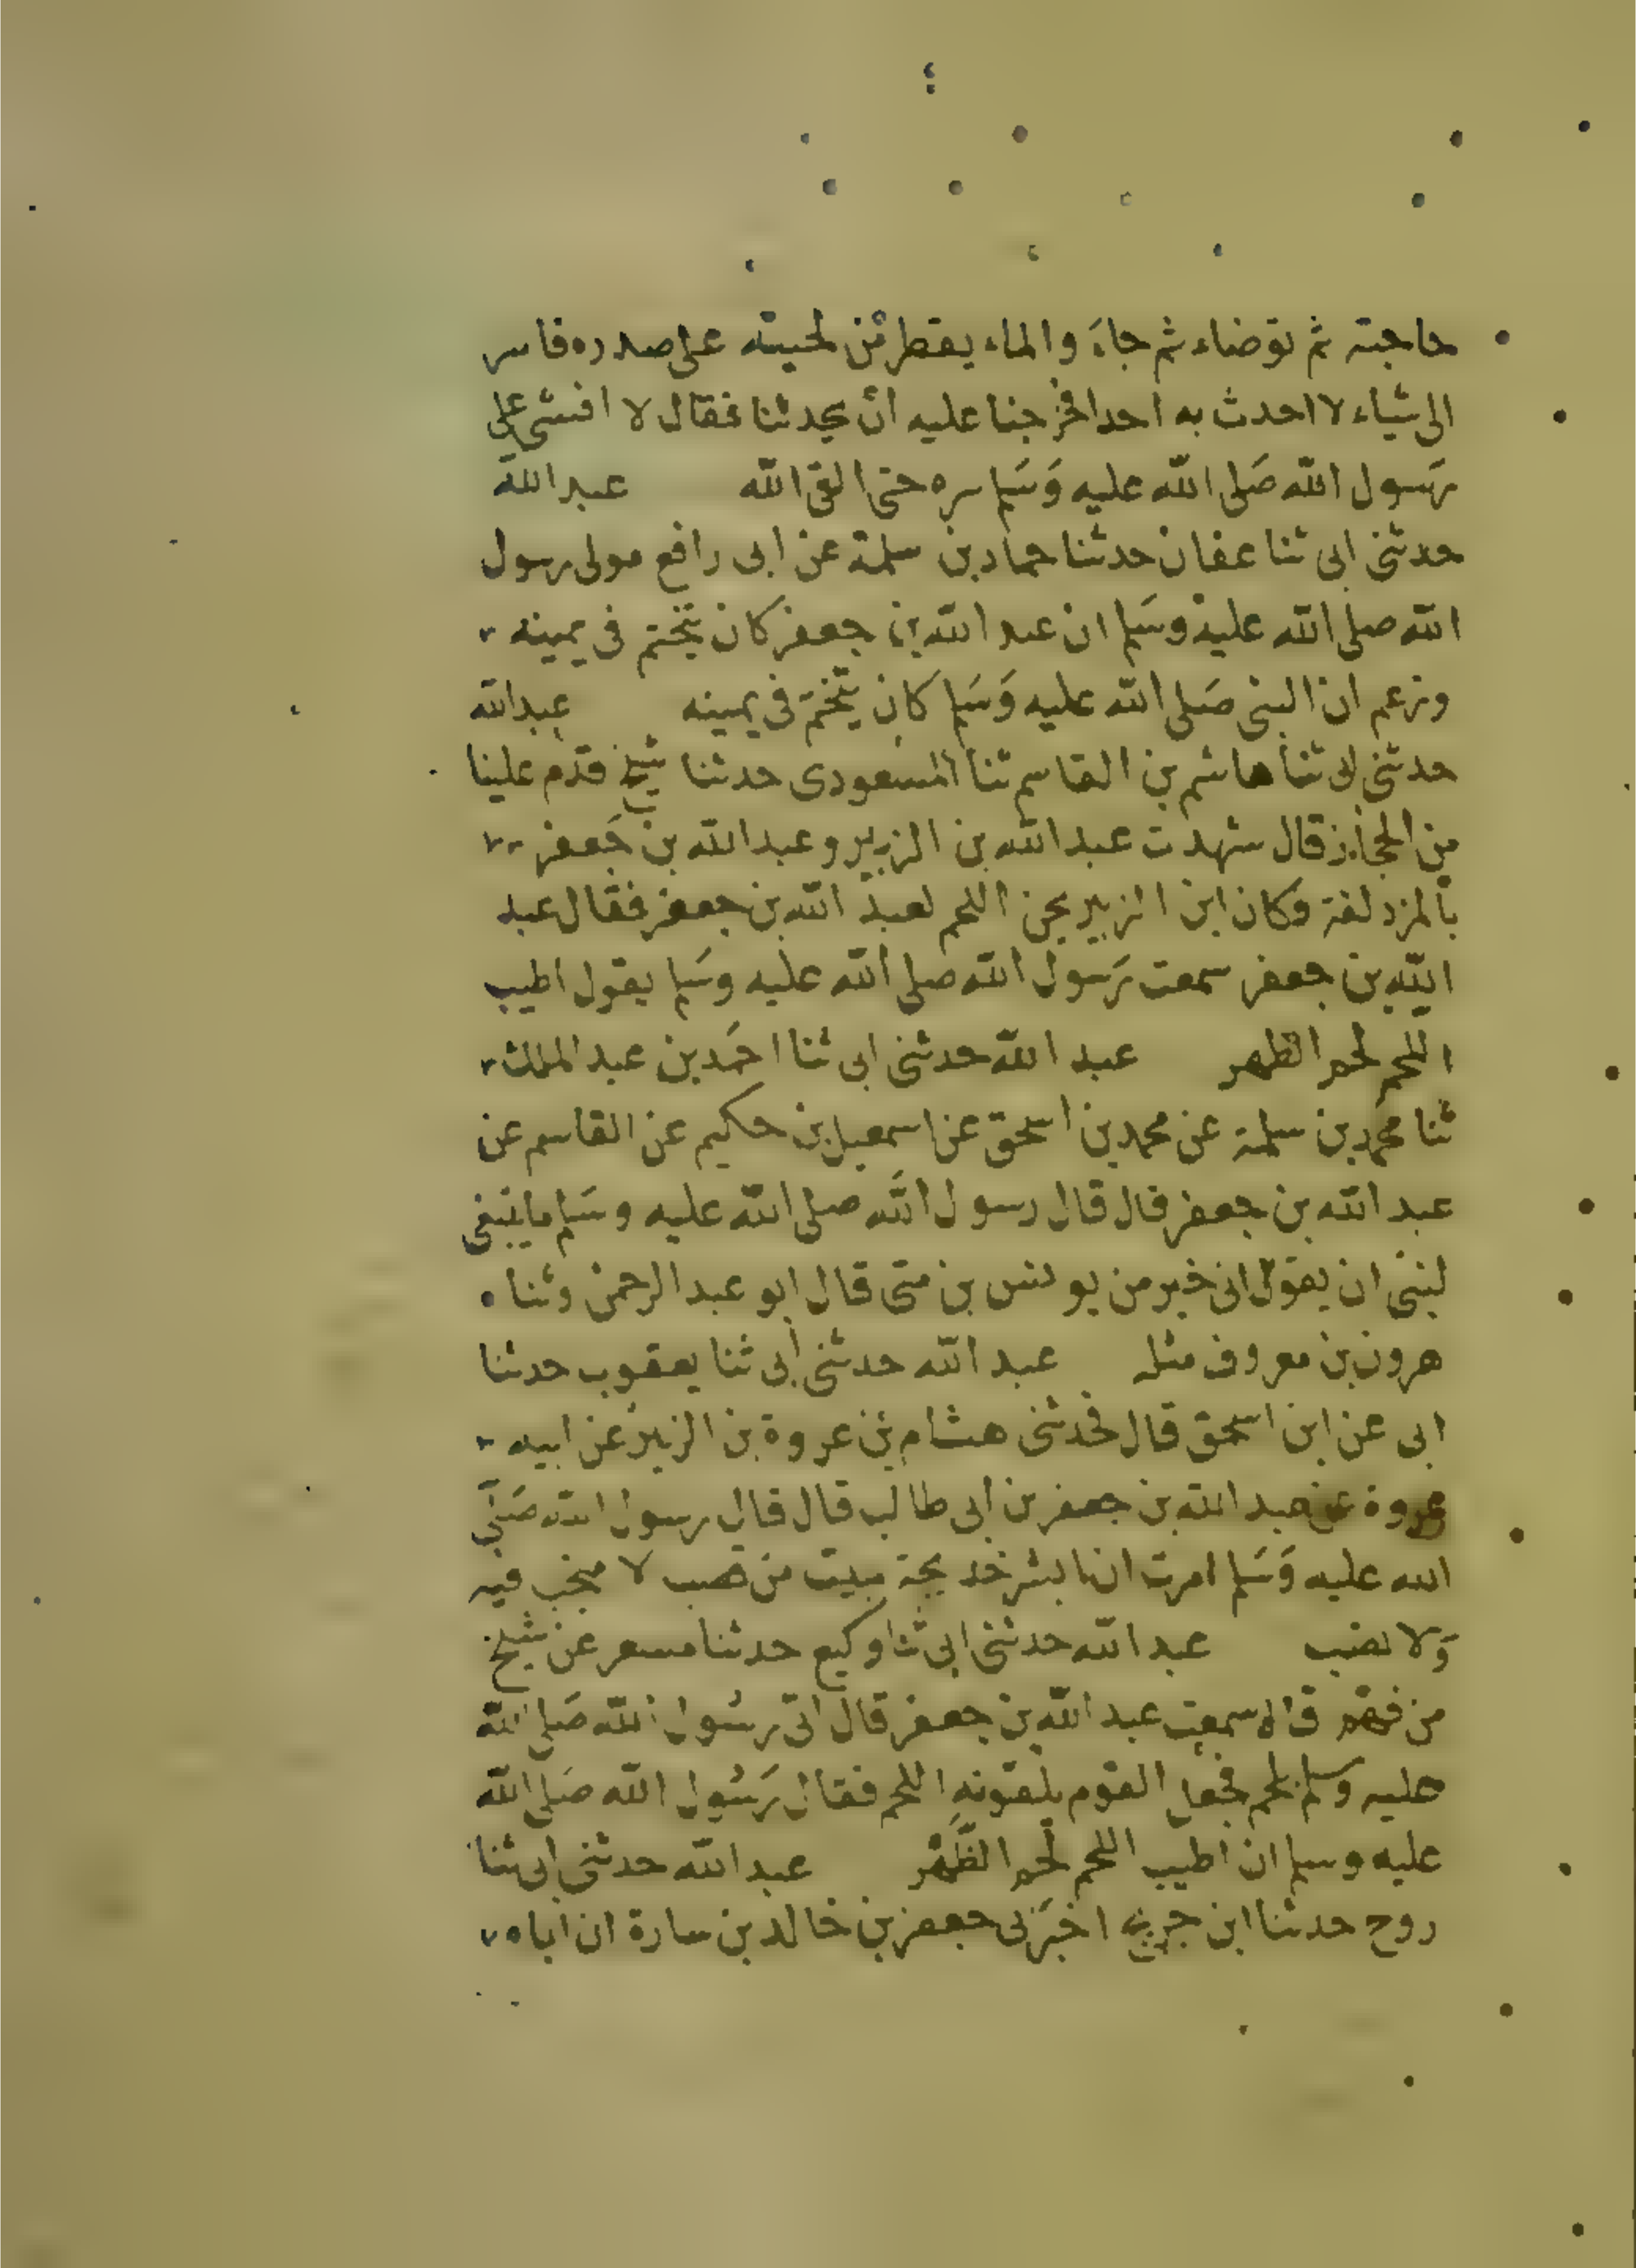 حاجته ثم توضاء ثم جاءَ والماء يقطر من لحيته على صدره فاسر
الى شياء لا احدث به احدا فحرجنا عليه ان يحدثنا فقال لا افشى على
رَسول الله صَلى الله عليه وَسَلم سره حتى القى الله عبد الله
حدثنى ابى ثنا عفان حدثنا حماد بن سلمة عن ابى رافع مولى رسول
الله صلى الله عليه وسَلم ان عبد الله بن جعفر كان يتختم فى يمينه
وزعم ان النبى صَلى الله عليه وَسَلم كان يتختم فى يمينه عبد الله
حدثنى ابى ثنا هاشم بن القاسم ثنا المسعودى حدثنا شيخ قدم علينا
من الحجاز قال شهدت عبد الله بن الزبير وعبد الله بن جَعفر
بالمزدلفة وكان ابن الزبير يحز اللحم لعبد الله بن جعفر فقال عبد
الله بن جعفر سمعت رَسول الله صلى الله عليه وسَلم يقول اطيب
اللحم لحم الظهر عبد الله حدثنى ابى ثنا احمَد بن عبد الملك
ثنا محمد بن سلمة عن محمد بن اسحق عن اسمعيل بن حكيم عن القاسم عن
عبد الله بن جعفر قال قال رسول الله صلى الله عليه وسَلم ما ينبغى
لنبى ان يقول انى خير من يونس بن متى قال ابو عبد الرحمن وثناه
هرون بن معروف مثله عبد الله حدثنى ابى ثنا يعقوب حدثنا
ابى عن ابن اسحق قال فحدثنى هشام بن عروة بن الزبير عن ابيه
عروة عن عبد الله بن جعفر بن ابى طالب قال قال رسول الله صَلى
الله عليه وَسَلم امرت ان ابشر خديجة ببيت من قصب لا صخب فيه
وَلا نصب عبد الله حدثنى ابى ثنا وكيع حدثنا مسعر عن شيخ
من فهم قال سمعت عبد الله بن جعفر قال اتى رسُول الله صَلى الله
عليه وسلم بلحم فجعل القوم يلقونه اللحم فقال رَسُول الله صَلى الله
عليه وسلم ان اطيب اللحم لحم الظَّهْر عبد الله حدثنى ابى ثنا
روح حدثنا ابن جريج اخبَرنى جعفر بن خالد بن سارة ان اباه